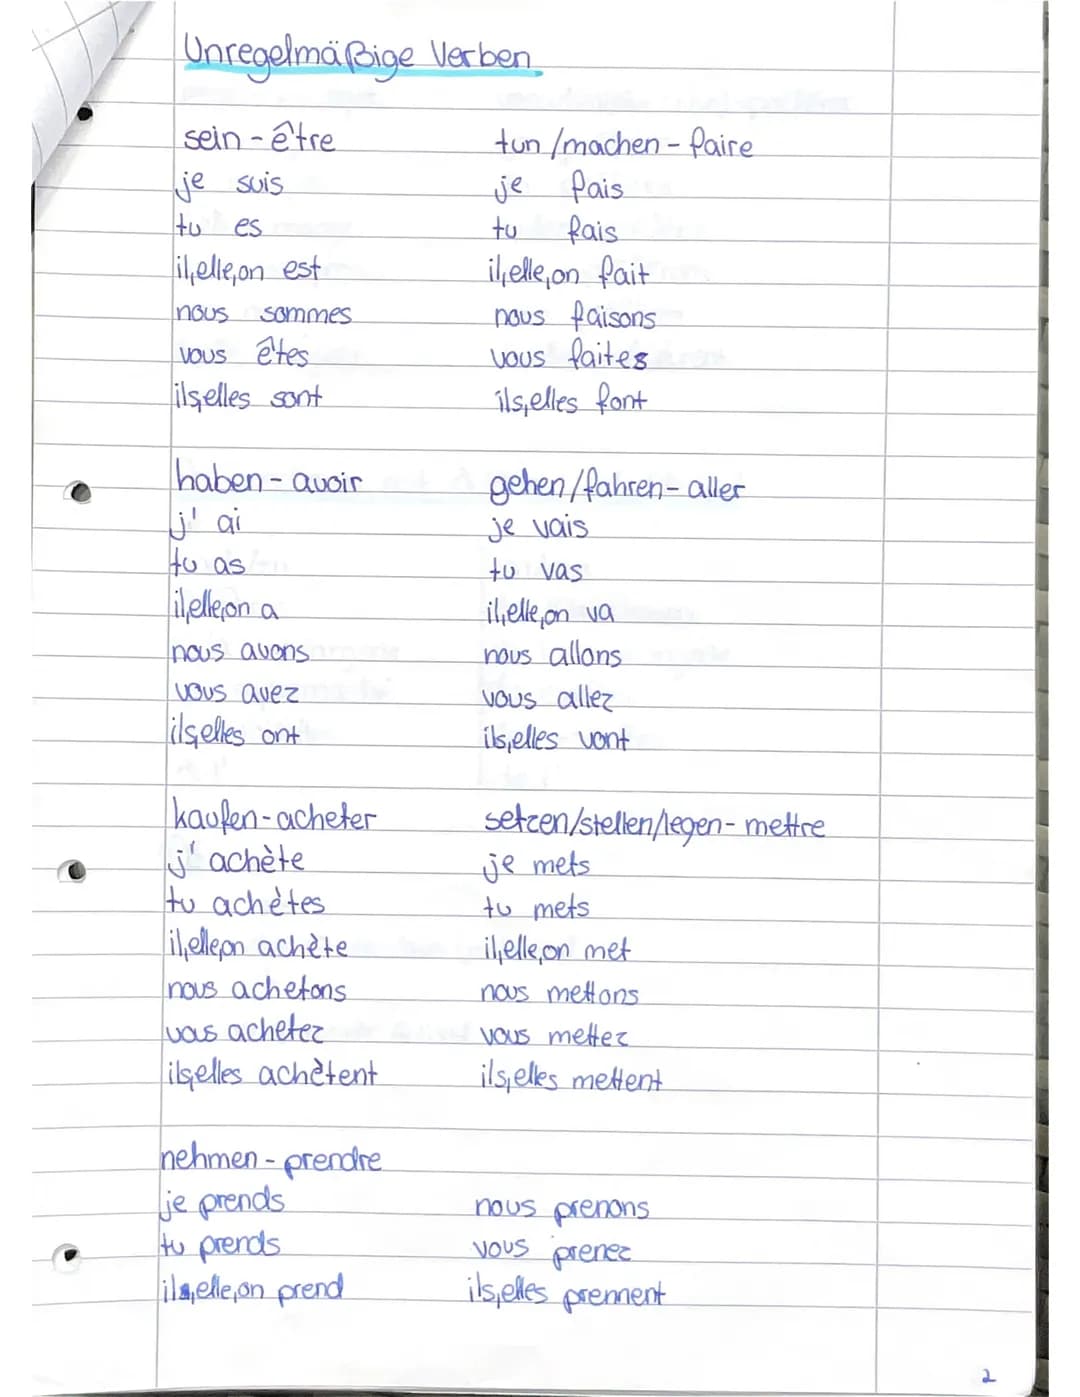 Unregelmäßige Verben
sein - être
je suis
tu es
il,elle,on est
nous sommes
vous êtes
ils,elles sont
tun/machen - faire
je fais
tu fais
il,elle,on fait
nous faisons
vous faites
ils,elles font
haben - avoir
j' ai
tu as
il,elle,on a
nous avons
vous avez
ils,elles ont
gehen/fahren - aller
je vais
tu vas
il,elle,on va
nous allons
vous allez
ils,elles vont
kaufen - acheter
j' achète
tu achètes
il,elle,on achète
nous achetons
vous achetez
ils,elles achètent
setzen/stellen/legen - mettre
je mets
tu mets
il,elle,on met
nous mettons
vous mettez
ils,elles mettent
nehmen - prendre
je prends
tu prends
il,elle,on prend
nous prenons
vous prenez
ils,elles prennent
2